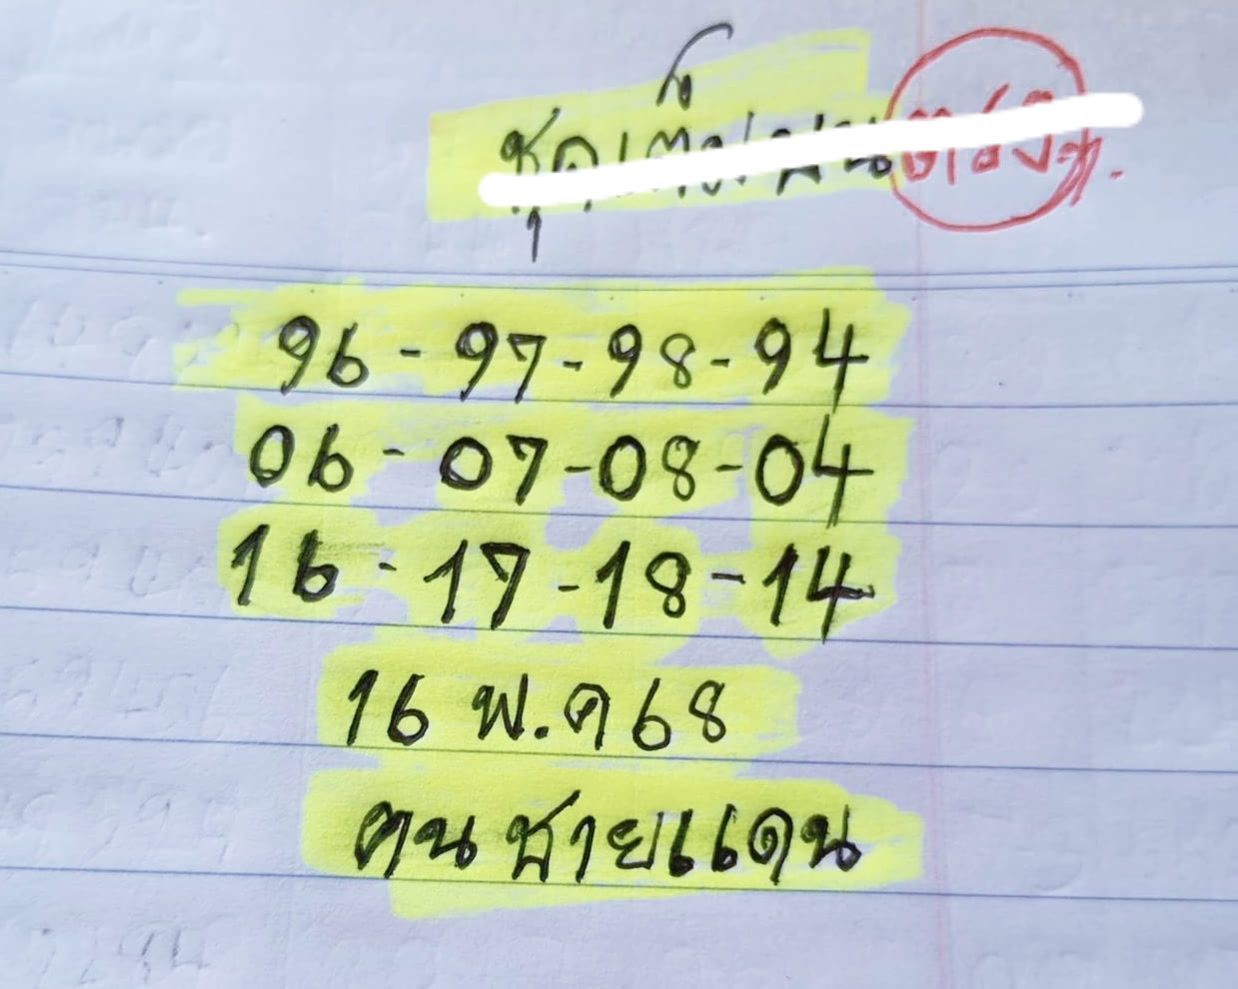 ชุด
96 - 97 - 98 - 94
06 - 07 - 08 - 04
16 - 17 - 18 - 14
16 พ.ค 68
คนชายแดน